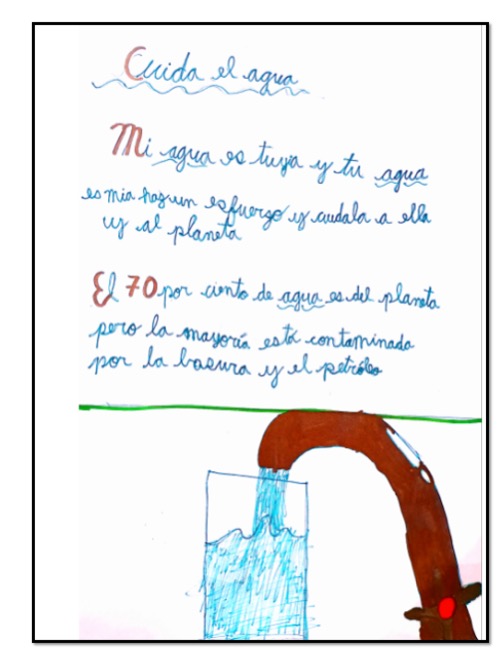 Cuida el agua
Mi agua es tuya y tu agua
es mia haz un esfuerzo y cuidala a ella
y al planeta
El 70 por ciento de agua es del planeta
pero la mayoría está contaminada
por la basura y el petróleo